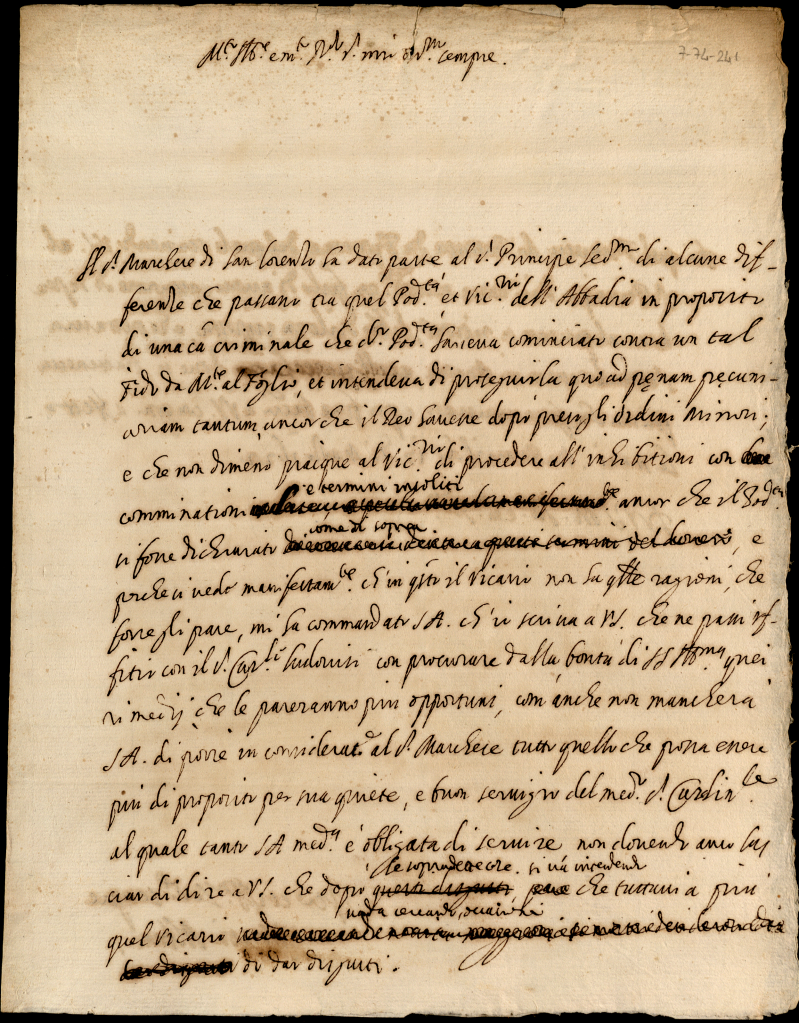 7-74-241
sempre.
Il s.r Marchese di San Lorenzo ha dato parte al s.r Principe Ser.mo di alcune dif-
ferenze che passano tra quel Pod.tà et Vic.rio dell'Abbadia in proposito
di una cā criminale che Pod.tà haveva cominciato contra un tal
Fido da al Foglio, et intendeva di proseguirla quo ad pęnam pęcuni-
ariam tantum, ancor che il Reo havesse dopò presi gli ordini Minori;
e che non dimeno piacque al Vic.rio di procedere all'inhibitioni con
e termini insoliti
comminationi ancor che il Pod.tà
come di sopra
si fosse dichiarato , e
perche si vede manifestam.te ch'in q.sto il Vicario non ha q.lle ragioni, che
forse gli pare, mi ha commandato S A. ch'io scriva a VS. che ne passi uf-
fitio con il s.r Car.le Ludovisi con procurare dalla bontà di SS quei
rimedij, che le pareranno più opportuni, com'anche non mancherà
S A. di porre in considerat.e al s.r Marchese tutto quello che possa essere
più di proposito per sua quiete, e buon servizio del med.o s.r Cardin.le
al quale tanto S A med.a è obligata di servire non dovendo anco las
le sopradette cose si và intendendo
ciar di dire a VS. che dopò che tuttavia più
vada cercando
quel Vicario
di dar disgusti.